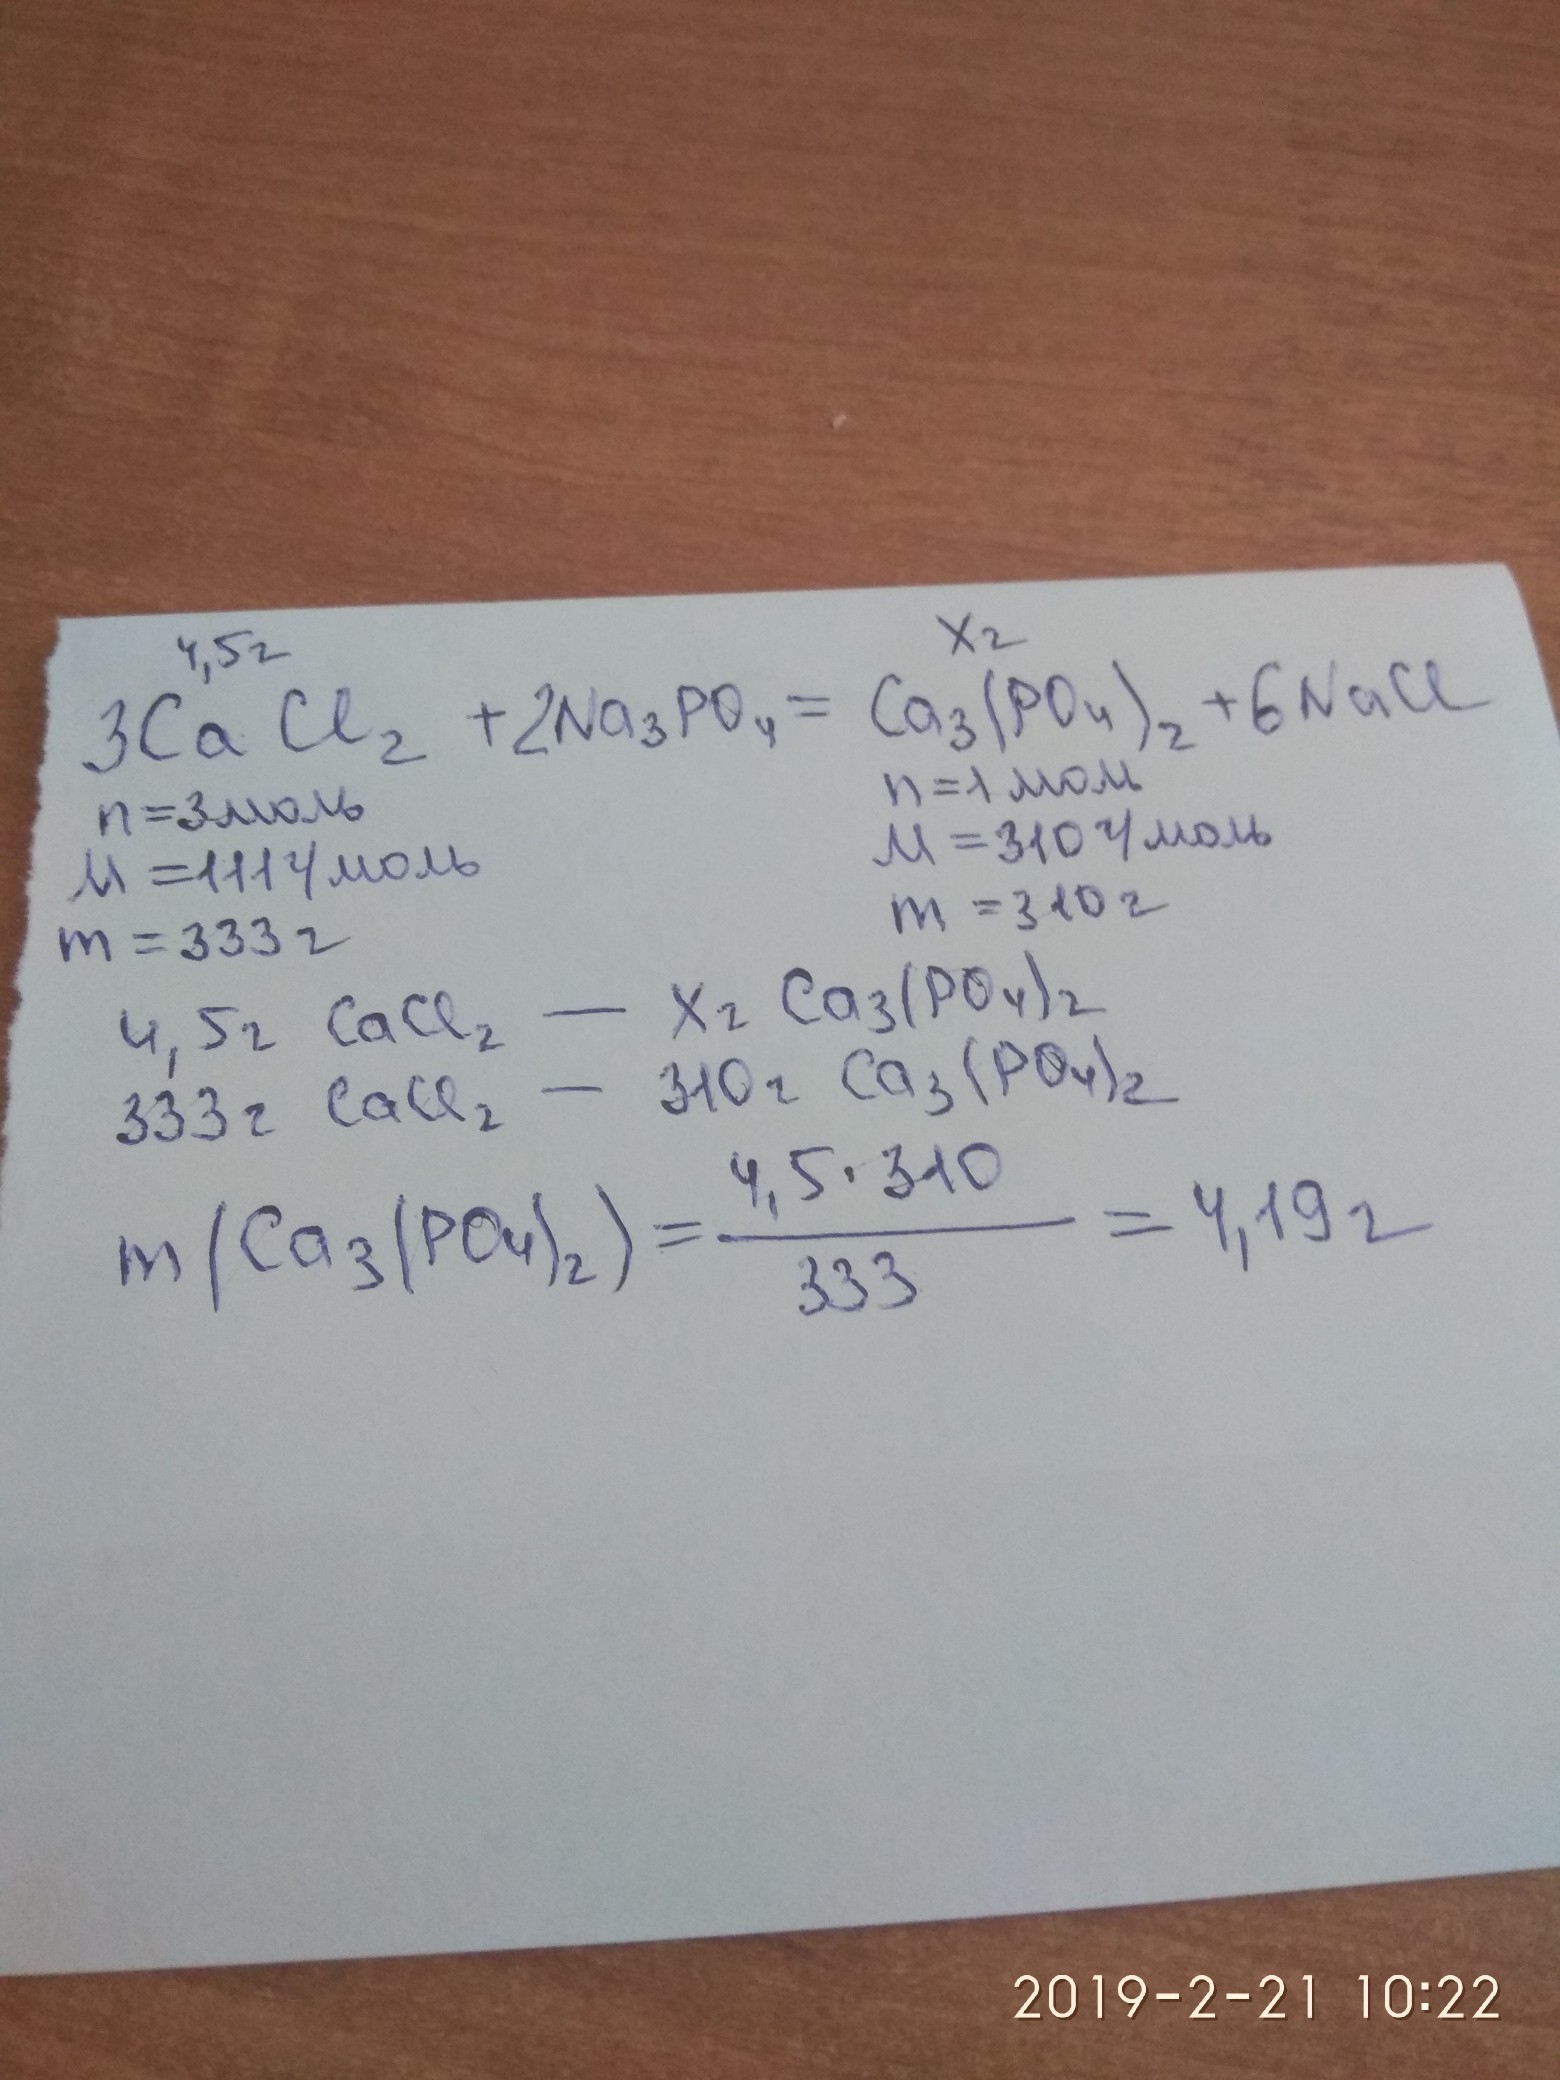 4,5г Xг
3CaCl₂ + 2Na₃PO₄ = Ca₃(PO₄)₂ + 6NaCl
n=3моль n=1моль
M=111г/моль M=310г/моль
m=333г m=310г
4,5г CaCl₂ — Xг Ca₃(PO₄)₂
333г CaCl₂ — 310г Ca₃(PO₄)₂
m(Ca₃(PO₄)₂) = 4,5·310 / 333 = 4,19г
2019-2-21 10:22